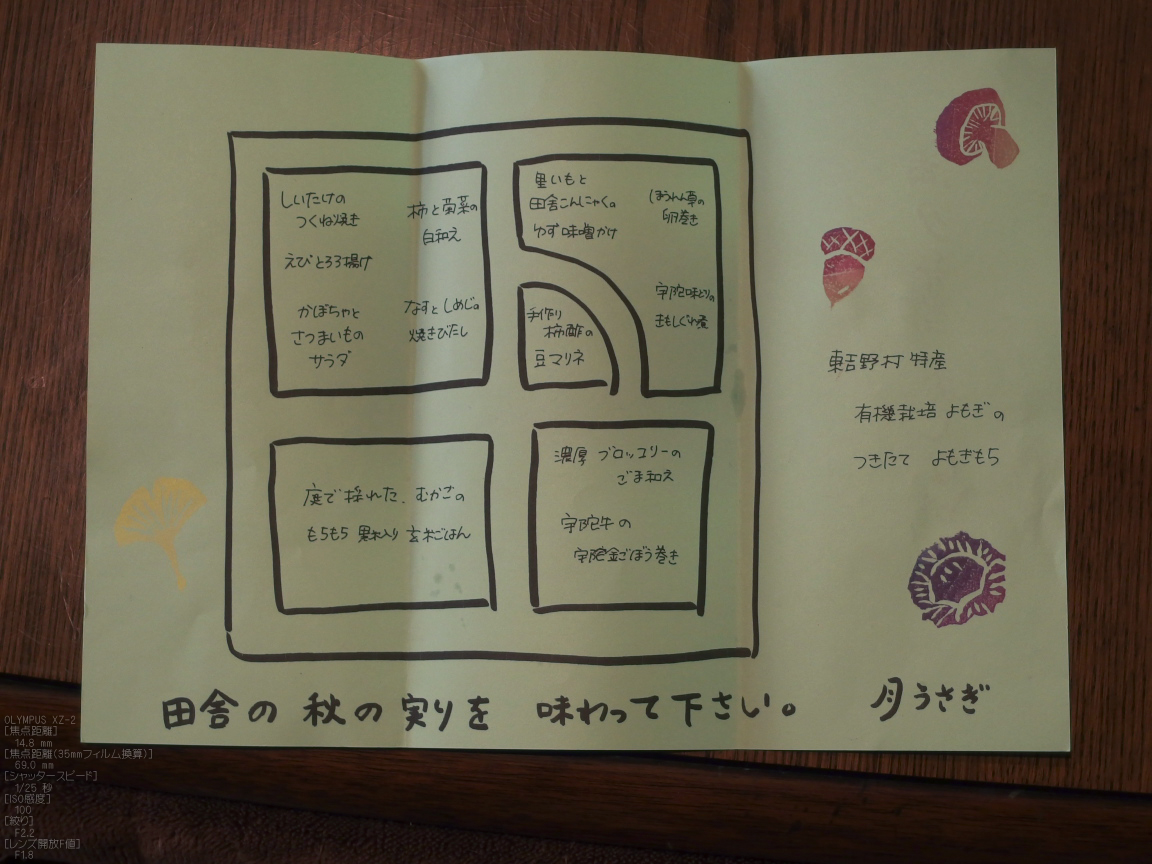 しいたけの
つくね焼き
えびとろろ揚げ
かぼちゃと
さつまいもの
サラダ
柿と菊菜の
白和え
なすとしめじの
焼きびたし
里いもと
田舎こんにゃくの
ゆず味噌かけ
ほうれん草の
卵巻き
宇陀味どりの
きもしぐれ煮
手作り
柿酢の
豆マリネ
庭で採れた、むかごの
もちもち 黒米入り 玄米ごはん
濃厚 ブロッコリーの
ごま和え
宇陀牛の
宇陀金ごぼう巻き
東吉野村 特産
有機栽培 よもぎの
つきたて よもぎもち
田舎の 秋の実りを 味わって下さい。 月うさぎ
OLYMPUS XZ-2
[焦点距離]
14.8 mm
[焦点距離(35mmフィルム換算)]
69.0 mm
[シャッタースピード]
1/25 秒
[ISO感度]
100
[絞り]
F2.2
[レンズ開放F値]
F1.8